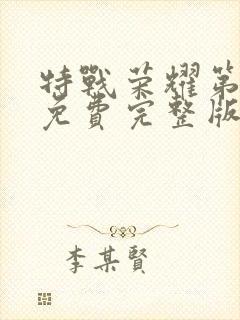 特戰荣耀第
免費完整版
李某賢